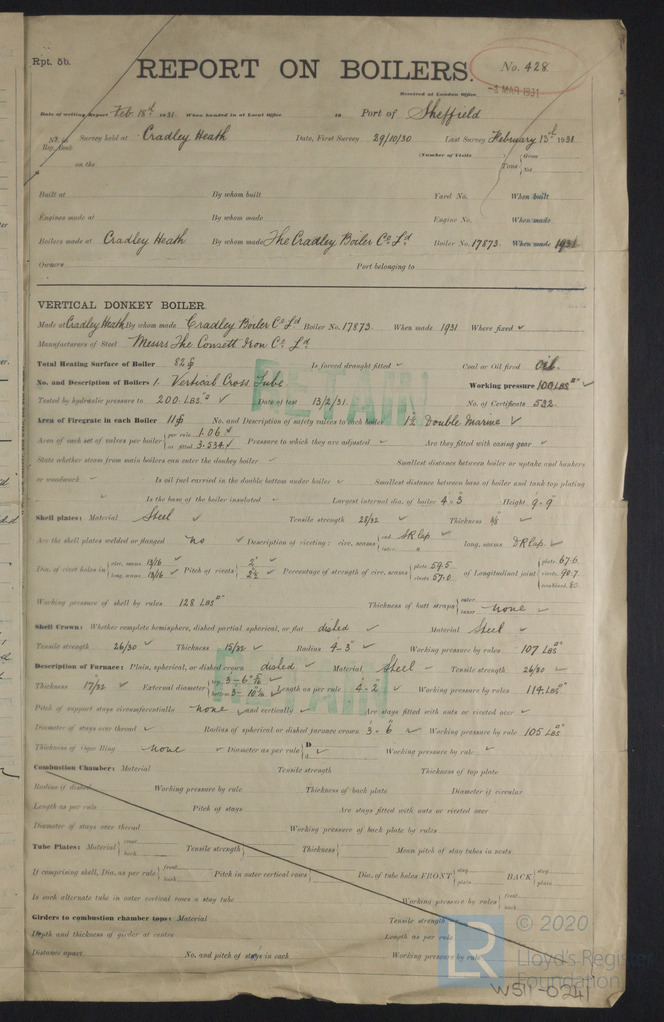 Rpt. 5b.
REPORT ON BOILERS.
No. 428
Received at London Office
-4 MAR 1931
Date of writing Report Feb 18th 1931 When handed in at Local Office 19 Port of Sheffield
No. in Reg. Book Survey held at Cradley Heath Date, First Survey 29/10/30 Last Survey February 13th 1931
(Number of Visits
on the Tons { Gross Net
Built at By whom built Yard No. When built
Engines made at By whom made Engine No. When made
Boilers made at Cradley Heath By whom made The Cradley Boiler Co Ld Boiler No. 17873 When made 1931
Owners Port belonging to
VERTICAL DONKEY BOILER.
Made at Cradley Heath By whom made Cradley Boiler Co Ld Boiler No. 17873 When made 1931 Where fixed ✓
Manufacturers of Steel Messrs The Consett Iron Co Ld
Total Heating Surface of Boiler 82 Is forced draught fitted ✓ Coal or Oil fired Oil
No. and Description of Boilers 1. Vertical Cross Tube Working pressure 100 LBS ✓
Tested by hydraulic pressure to 200 LBS ✓ Date of test 13/2/31 No. of Certificate 532
RETAIN
Area of Firegrate in each Boiler 11 No. and Description of safety valves to each boiler 1½ Double Marine ✓
Area of each set of valves per boiler { per rule 1.06 as fitted 3.534 ✓ Pressure to which they are adjusted ✓ Are they fitted with easing gear ✓
State whether steam from main boilers can enter the donkey boiler ✓ Smallest distance between boiler or uptake and bunkers
or woodwork ✓ Is oil fuel carried in the double bottom under boiler ✓ Smallest distance between base of boiler and tank top plating
✓ Is the base of the boiler insulated ✓ Largest internal dia. of boiler 4'-3" Height 9'-9"
Shell plates: Material Steel ✓ Tensile strength 28/32 ✓ Thickness ✓
Are the shell plates welded or flanged no ✓ Description of riveting: circ. seams { end SR lap inter. long. seams DR lap ✓
Dia. of rivet holes in { circ. seams 13/16 ✓ long. seams 13/16 ✓ Pitch of rivets { 2" 2½ ✓ Percentage of strength of circ. seams { plate 59.5 rivets 57.0 of Longitudinal joint { plate 67.6 rivets 90.7 combined
Working pressure of shell by rules 128 LBS Thickness of butt straps { outer inner none ✓
Shell Crown: Whether complete hemisphere, dished partial spherical, or flat dished ✓ Material Steel ✓
Tensile strength 26/30 ✓ Thickness 15/32 ✓ Radius 4'-3" ✓ Working pressure by rules 107 LBS
Description of Furnace: Plain, spherical, or dished crown dished ✓ Material Steel ✓ Tensile strength 26/30 ✓
RETAIN
Thickness 17/32 ✓ External diameter { top 3'-6" bottom 3'-10" Length as per rule 4'-2" ✓ Working pressure by rules 114 LBS
Pitch of support stays circumferentially none ✓ and vertically ✓ Are stays fitted with nuts or riveted over ✓
Diameter of stays over thread ✓ Radius of spherical or dished furnace crown 3'-6" ✓ Working pressure by rule 105 LBS
Thickness of Ogee Ring none ✓ Diameter as per rule { D d ✓ Working pressure by rule ✓
Combustion Chamber: Material Tensile strength Thickness of top plate
Radius if dished Working pressure by rule Thickness of back plate Diameter if circular
Length as per rule Pitch of stays Are stays fitted with nuts or riveted over
Diameter of stays over thread Working pressure of back plate by rules
Tube Plates: Material { front back Tensile strength { Thickness { Mean pitch of stay tubes in nests
If comprising shell, Dia. as per rule { front back Pitch in outer vertical rows { Dia. of tube holes FRONT { stay plain BACK { stay plain
Is each alternate tube in outer vertical rows a stay tube Working pressure by rules { front back
Girders to combustion chamber tops: Material Tensile strength
Depth and thickness of girder at centre Length as per rule
Distance apart No. and pitch of stays in each Working pressure by rule
LR © 2020
Lloyd's Register
Foundation
W511-0241